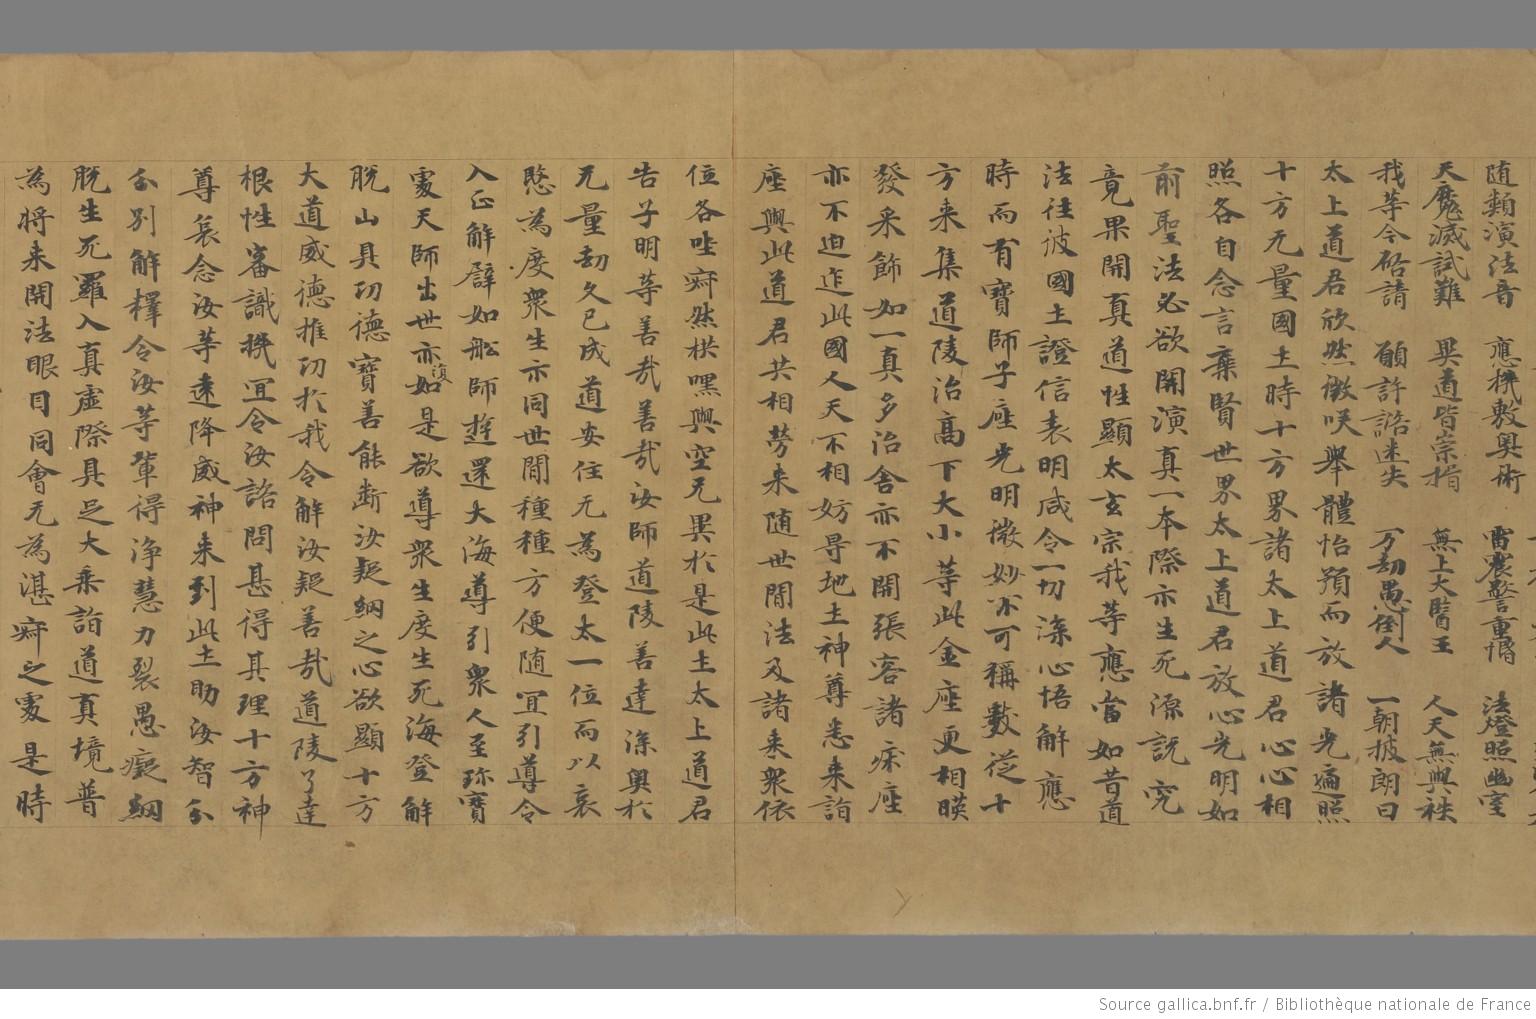 随類演法音　應機敷奧術　雷震警重惛　法燈照幽室
天魔滅試難　異道皆崇揖　無上大醫王　人天無與袟
我等今啓請　願許誥迷失　万劫愚倒人　一朝披朗日
太上道君欣然微咲舉體怡預而放諸光遍照
十方无量國土時十方界諸太上道君心心相
照各自念言棄賢世界太上道君放心光明如
前聖法必欲開演真一本際示生死源說究
竟果開真道性顯太玄宗我等應當如昔道
法往彼國土證信表明咸令一切深心悟解應
時而有寶師子座光明微妙不可稱數從十
方來集道陵治高下大小等此金座更相暎
發采飾如一真多治舍亦不開張容諸床座
亦不迫迮此國人天不相妨㝵地土神尊悉來詣
座與此道君共相勞来随世閒法及諸来衆依
位各坐寂然栱嘿與空无異於是此土太上道君
告子明等善哉善哉汝師道陵善達深奧於
无量劫久已成道安住无為登太一位而以哀
愍為度衆生示同世閒種種方便随宜引導令
入正解譬如舩師遊還大海導引衆人至珎寶
處天師出世亦復如是欲導衆生度生死海登解
脫山具功德寶善能断汝疑網之心欲顯十方
大道威德推功於我令解汝疑善哉道陵了達
根性審識機宜令汝諮問甚得其理十方神
尊哀念汝等速降威神来到此土助汝智分
分別解釋令汝等輩得淨慧力裂愚癡網
脫生死羅入真虛際具足大乘詣道真境普
為將来開法眼目同會无為湛寂之處是時
Source gallica.bnf.fr / Bibliothèque nationale de France